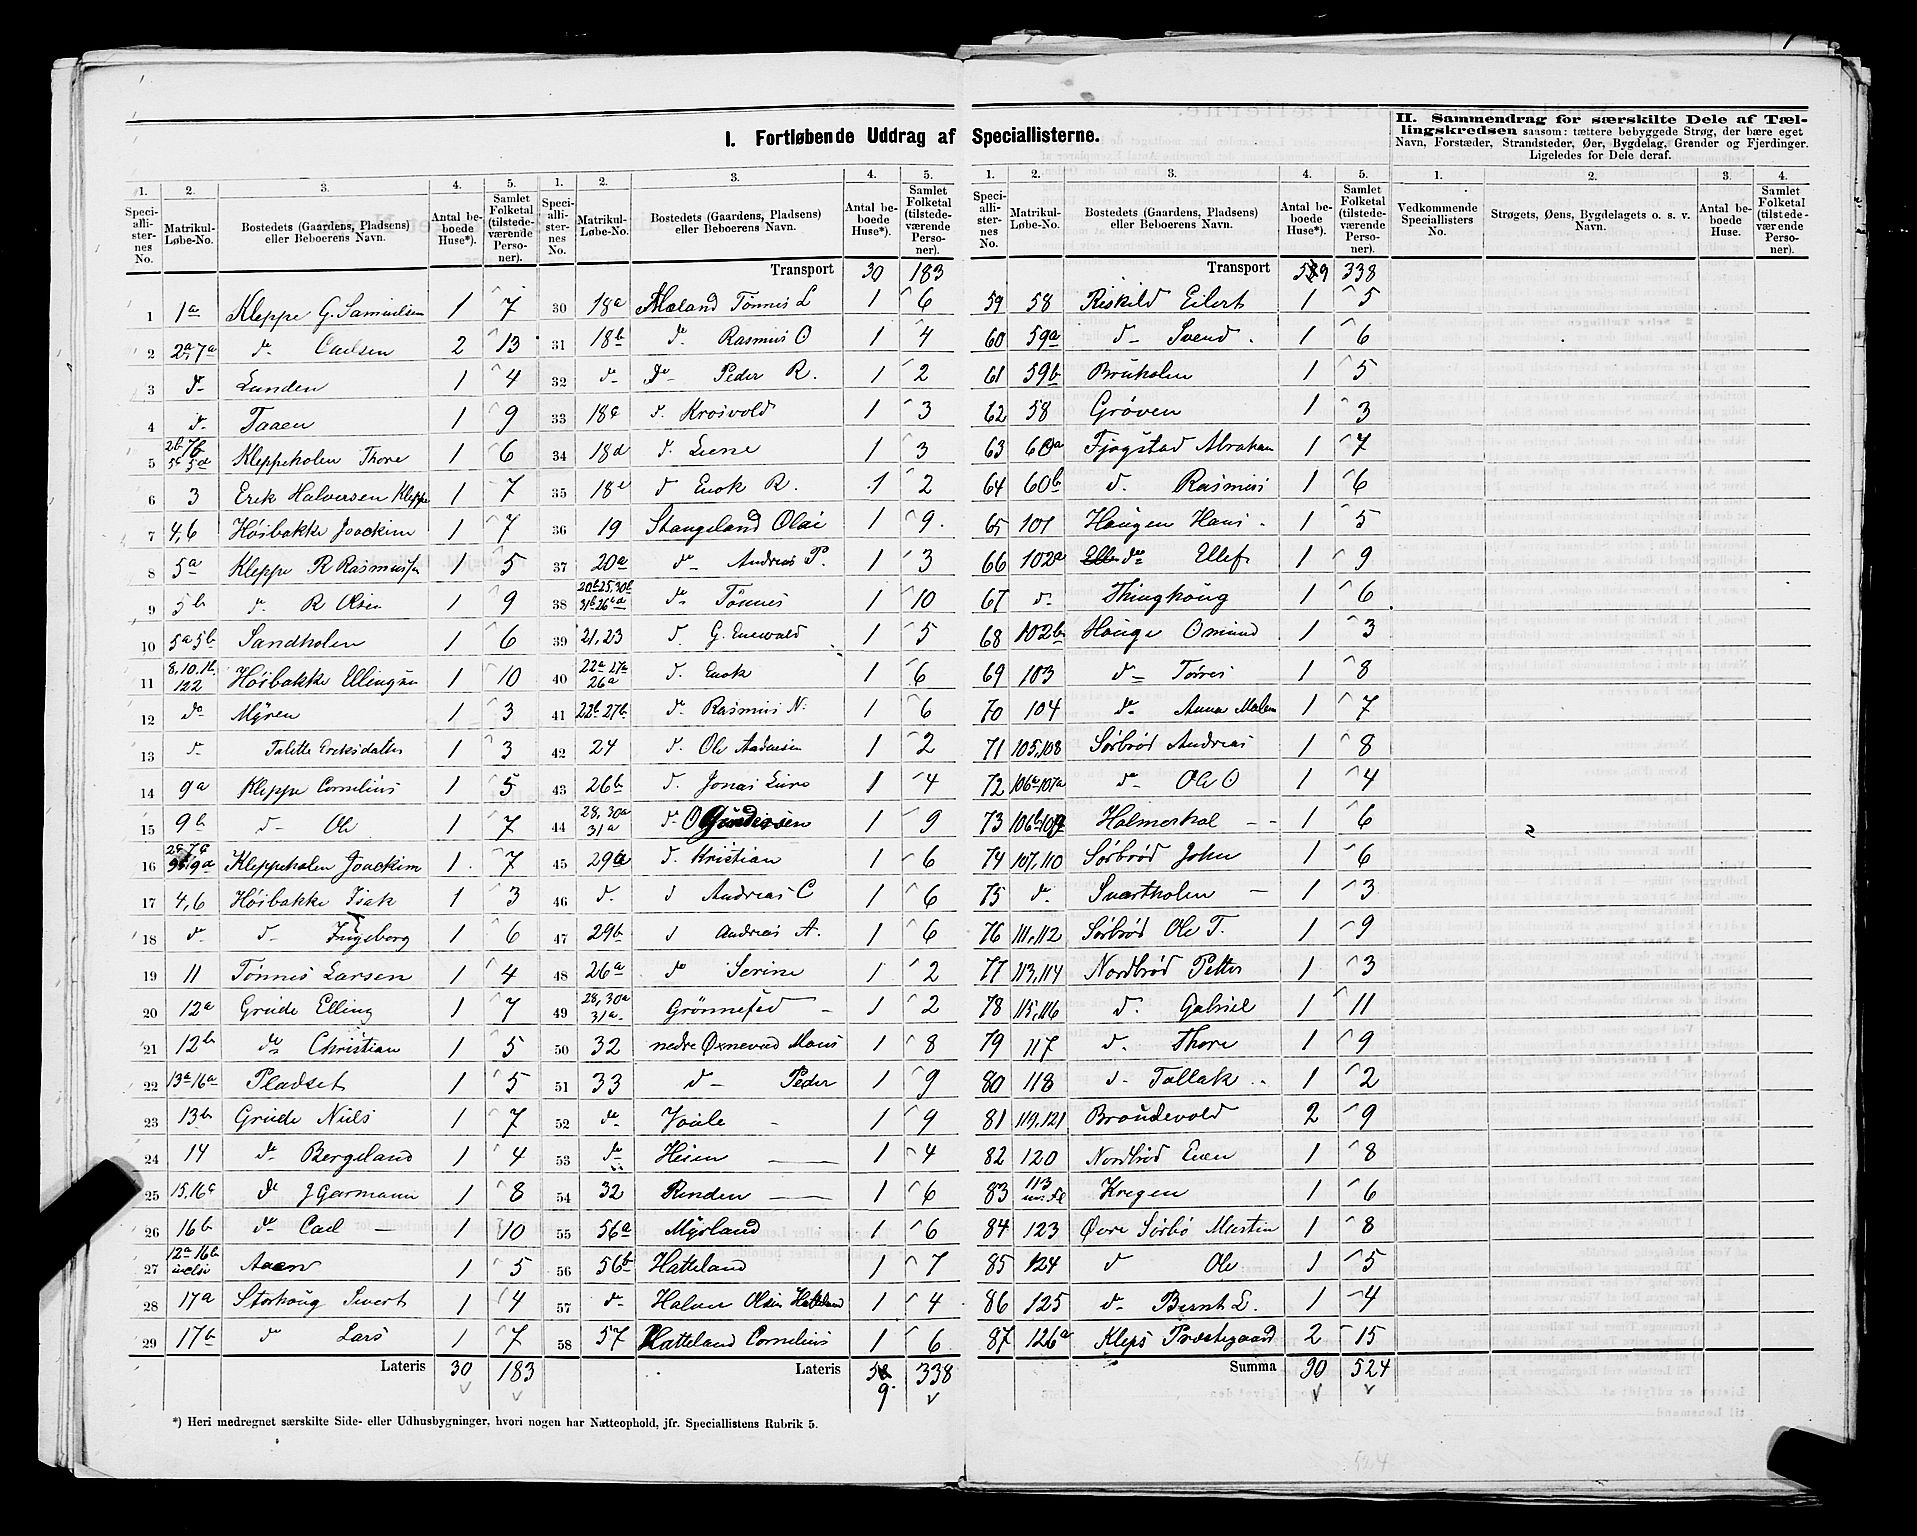 I. Fortløbende Uddrag af Speciallisterne.
II. Sammendrag for særskilte Dele af Tællingskredsen saasom: tættere bebyggede Strøg, der bære eget Navn, Forstæder, Strandsteder, Øer, Bygdelag, Grender og Fjerdinger. Ligeledes for Dele deraf.
1. 2. 3. 4. 5. 1. 2. 3. 4. 5. 1. 2. 3. 4. 5. 1. 2. 3. 4.
Speciallisternes No. Matrikul-Løbe-No. Bostedets (Gaardens, Pladsens) eller Beboerens Navn. Antal beboede Huse*). Samlet Folketal (tilstedeværende Personer).
Speciallisternes No. Matrikul-Løbe-No. Bostedets (Gaardens, Pladsens) eller Beboerens Navn. Antal beboede Huse*). Samlet Folketal (tilstedeværende Personer).
Speciallisternes No. Matrikul-Løbe-No. Bostedets (Gaardens, Pladsens) eller Beboerens Navn. Antal beboede Huse*). Samlet Folketal (tilstedeværende Personer).
Vedkommende Speciallisters No. Strøgets, Øens, Bygdelagets o. s. v. Navn. Antal beboede Huse. Samlet Folketal (tilstedeværende Personer).
1 1a Kleppe G. Samuelsen 1 7
2 2a 7a do Carlsen 2 13
3 do Lunden 1 4
4 do Taaen 1 9
5 2b 7b 5c 5d Kleppeholen Thore 1 6
6 3 Erik Halversen Kleppe 1 7
7 4,6 Høibakke Joackim 1 7
8 5a Kleppe R Rasmussen 1 5
9 5b do R Olsen 1 9
10 5a 5b Sandholen 1 6
11 8, 10, 1b, 122 Høibakke Ellingsen 1 10
12 do Myren 1 3
13 do Talette Eriksdatter 1 3
14 9a Kleppe Cornelius 1 5
15 9b do Ole 1 7
16 Kleppeholen Joackim 1 7
17 4,6 Høibakke Isak 1 3
18 do do Ingeborg 1 6
19 11 Tønnes Larsen 1 4
20 12a Grude Elling 1 7
21 12b do Christian 1 5
22 13a 16a Pladset 1 5
23 13b Grude Niels 1 7
24 14 do Bergeland 1 4
25 15, 16c do J Garmann 1 8
26 16b do Carl 1 10
27 12a 16b Aaen 1 5
28 17a Storhoug Sivert 1 4
29 17b do Lars 1 7
Lateris 30 183
Transport 30 183
30 18a Mæland Tönnes L 1 6
31 18b do Rasmus O 1 4
32 do do Peder R. 1 2
33 18c d. Krosvold 1 3
34 18d d. Lene 1 3
35 18e d Enok R. 1 2
36 19 Stangeland Olai 1 9
37 20a do Andreas P. 1 3
38 20b 25, 30b 31b 26d do Tönnes 1 10
39 21, 23 d. G. Enevald 1 5
40 22a 27a 26a d. Enok 1 6
41 22b 27b do Rasmus N. 1 6
42 24 d. Ole Andersen 1 2
43 26b d. Jonas 1 4
44 28, 30a 31a d. O Gundersen 1 9
45 29a d. Kristian 1 6
46 d. d Andreas C 1 6
47 29b d Andreas A. 1 6
48 26a do Serine 1 2
49 28, 30a 31a Grönnestad 1 2
50 32 nedre Øxnevad Mons 1 8
51 33 do Peder 1 9
52 do Voile 1 9
53 do Heien 1 4
54 32 Rinden 1 6
55 56a Myrland 1 6
56 56b Hatteland 1 7
57 do Halvor Olsen Hatteland 1 4
58 57 Hatteland Cornelius 1 6
Lateris 59 338
Transport 59 338
59 58 Reskild Eilert 1 5
60 59a d Svend 1 6
61 59b Bruholen 1 5
62 58 Gröven 1 3
63 60a Fjogstad Abraham 1 7
64 60b d. Rasmus 1 6
65 101 Haugen Hans 1 5
66 102a do Ellef 1 9
67 do Thinghoug 1 6
68 102b Houge Omund 1 3
69 103 do Torres 1 8
70 104 do Anna Malene 1 7
71 105, 108 Sörbröd Andreas 1 8
72 106a 107a do Ole O 1 4
73 106b 109 Holmerhol 1 6
74 107, 110 Sörbröd John 1 6
75 d. Svartholen 1 3
76 111, 112 Sörbröd Ole T. 1 9
77 113, 114 Nordbröd Petter 1 3
78 115, 116 d. Gabriel 1 11
79 117 d. Thore 1 9
80 118 d. Tollak 1 2
81 119, 121 Braudevold 2 9
82 120 Nordbröd Even 1 8
83 113 Kregen 1 6
84 123 Øvre Sörbö Martin 1 8
85 124 d Ole 1 5
86 125 do Bernt L. 1 4
87 126a Kleps Præstegaard 2 15
Summa 90 524
*) Heri medregnet særskilte Side- eller Udhusbygninger, hvori nogen har Natteophold, jfr. Speciallistens Rubrik 5.
524